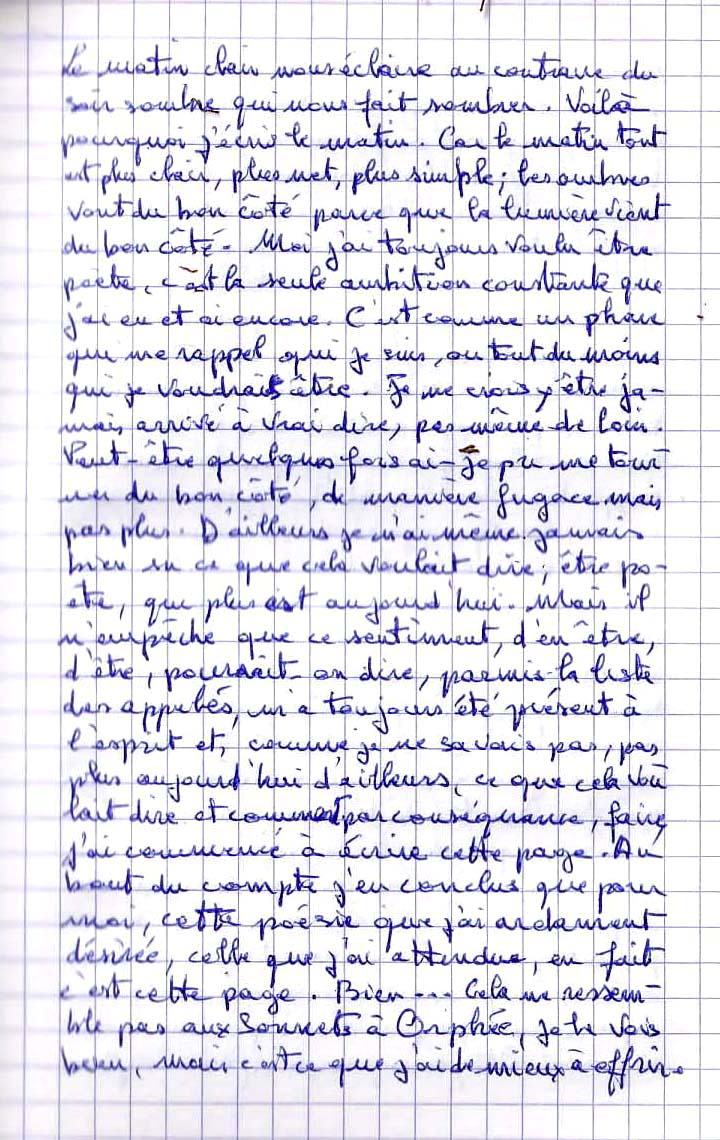 Le matin clair nous éclaire au contraire du
soir sombre qui nous fait sombrer. Voilà
pourquoi j'écris le matin. Car le matin tout
est plus clair, plus net, plus simple ; les ombres
vont du bon côté parce que la lumière vient
du bon côté. Moi j'ai toujours voulu être
poète, c'est la seule ambition constante que
j'ai eu et ai encore. C'est comme un phare
qui me rappel qui je suis, ou tout du moins
qui je voudrais être. Je ne crois y être ja-
mais arrivé à vrai dire, pas même de loin.
Peut-être quelques fois ai-je pu me tour
ner du bon côté, de manière fugace mais
pas plus. D'ailleurs je n'ai même jamais
bien su ce que cela voulait dire, être po-
ète, que plus est aujourd'hui. Mais il
n'empêche que ce sentiment, d'en être,
d'être, pourrait-on dire, parmis la liste
des appelés, m'a toujours été présent à
l'esprit et, comme je ne savais pas, pas
plus aujourd'hui d'ailleurs, ce que cela vou
lait dire et comment par conséquance, faire,
j'ai commencé à écrire cette page. Au
bout du compte j'en conclus que pour
moi, cette poésie que j'ai ardament
désirée, celle que j'ai attendue, en fait
c'est cette page. Bien... Cela ne ressem-
ble pas aux Sonnets à Orphée, je le vois
bien, mais c'est ce que j'ai de mieux à offrir.